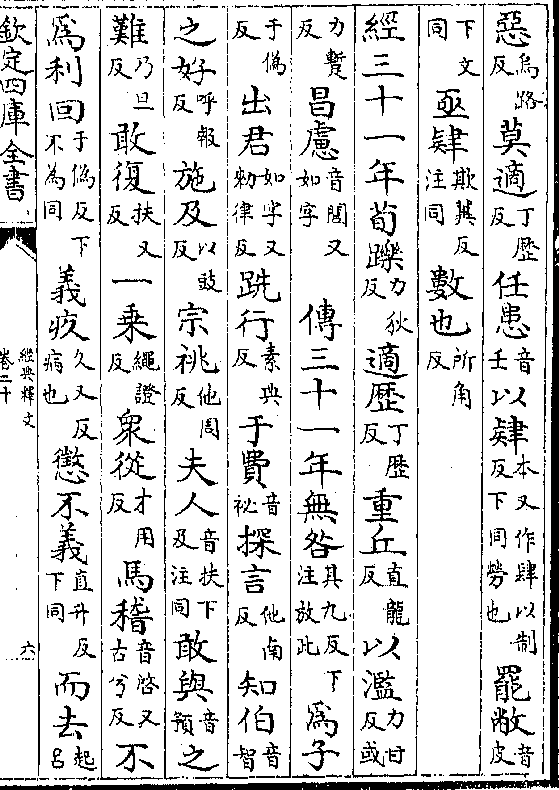 惡烏路反莫適丁歷反任患音壬以肄本又作肆以制反下同勞也罷敝音皮
下文同亟肄欺冀反注同數也所角反
經三十一年荀躒力狄反適歷丁歷反重丘直龍反以濫力甘反或
力蹔反昌慮音閭又如字傳三十一年無咎其九反下注放此為子
于偽反出君如字又勑律反跣行素典反于費音祕探言他南反知伯音智
之好呼報反施及以豉反宗祧他周反夫人音扶下及注同敢與音預之
難乃旦反敢復扶又反一乘繩證反衆從才用反馬稽音啓又古兮反不
為利回于偽反下不為同義疚久又反病也懲不義直升反下同而去起呂
欽定四庫全書
經典釋文
卷二十
六